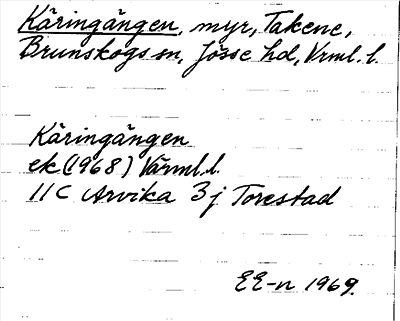 Käringängen, myr, Takene,
Brunskogs sn, Jösse hd, Vrml. l.
Käringängen
ek. (1968) Värml. l.
11C Arvika 3j Torestad
EE-n 1969.